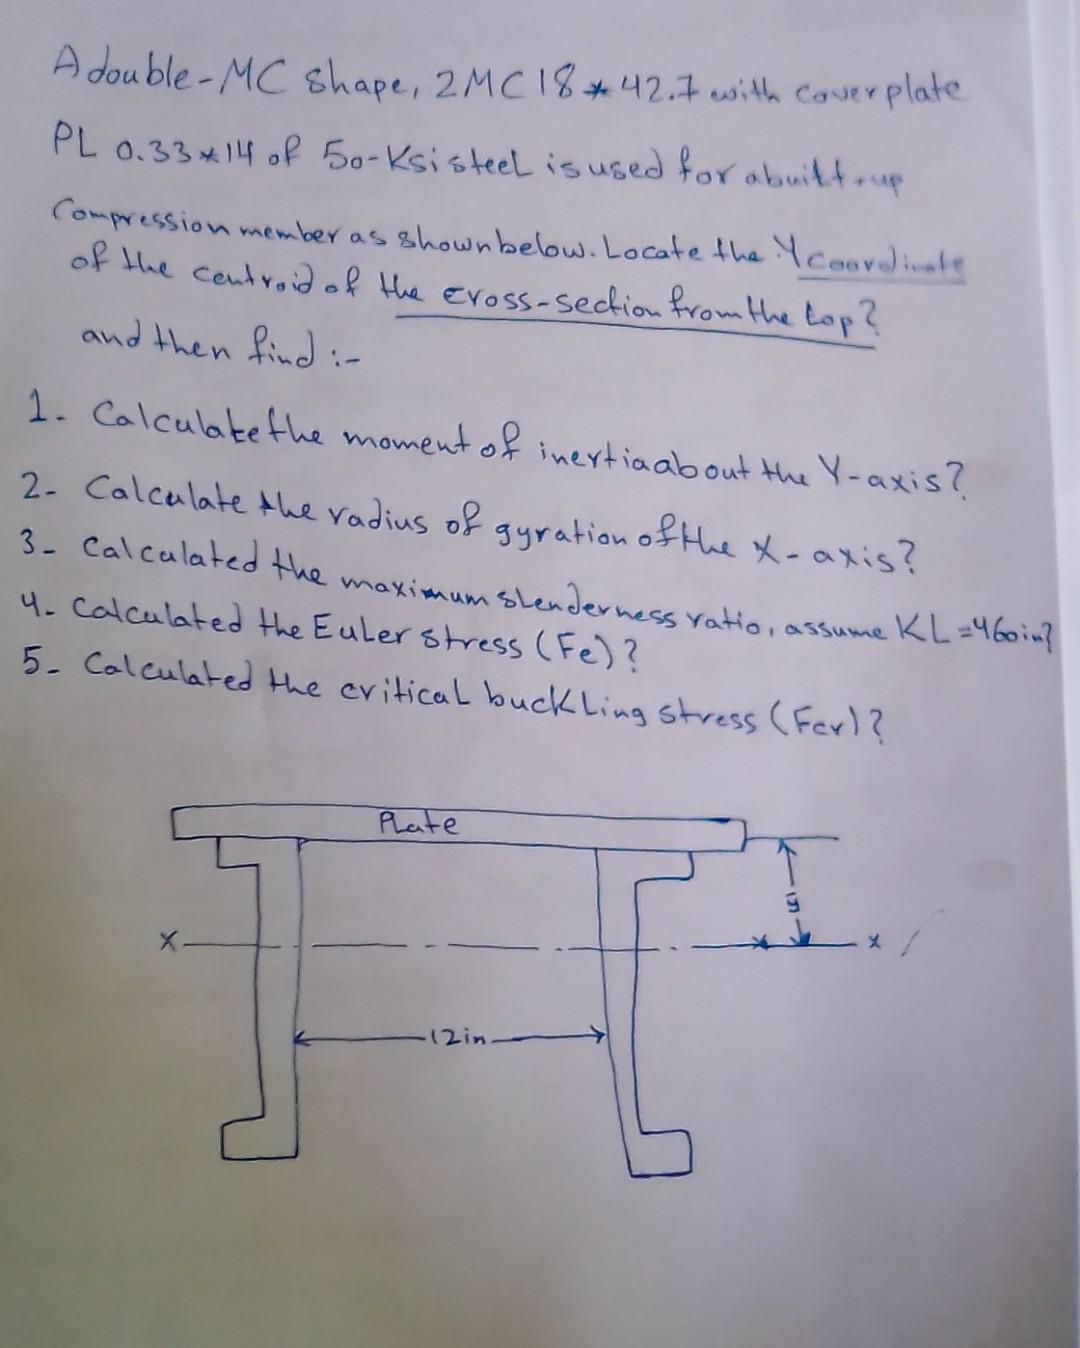 A double-MC shape, 2MC18*42.7 with cover plate
PL 0.33*14 of 50-Ksi steel is used for a built-up
Compression member as shown below. Locate the Y coordinate
of the centroid of the cross-section from the top?
and then find :-
1. Calculate the moment of inertia about the Y-axis?
2- Calculate the radius of gyration of the X-axis?
3- Calculated the maximum slenderness ratio, assume KL=460in?
4- Calculated the Euler stress (Fe)?
5- Calculated the critical buckling stress (Fcr)?
Plate
ȳ
X x
12in